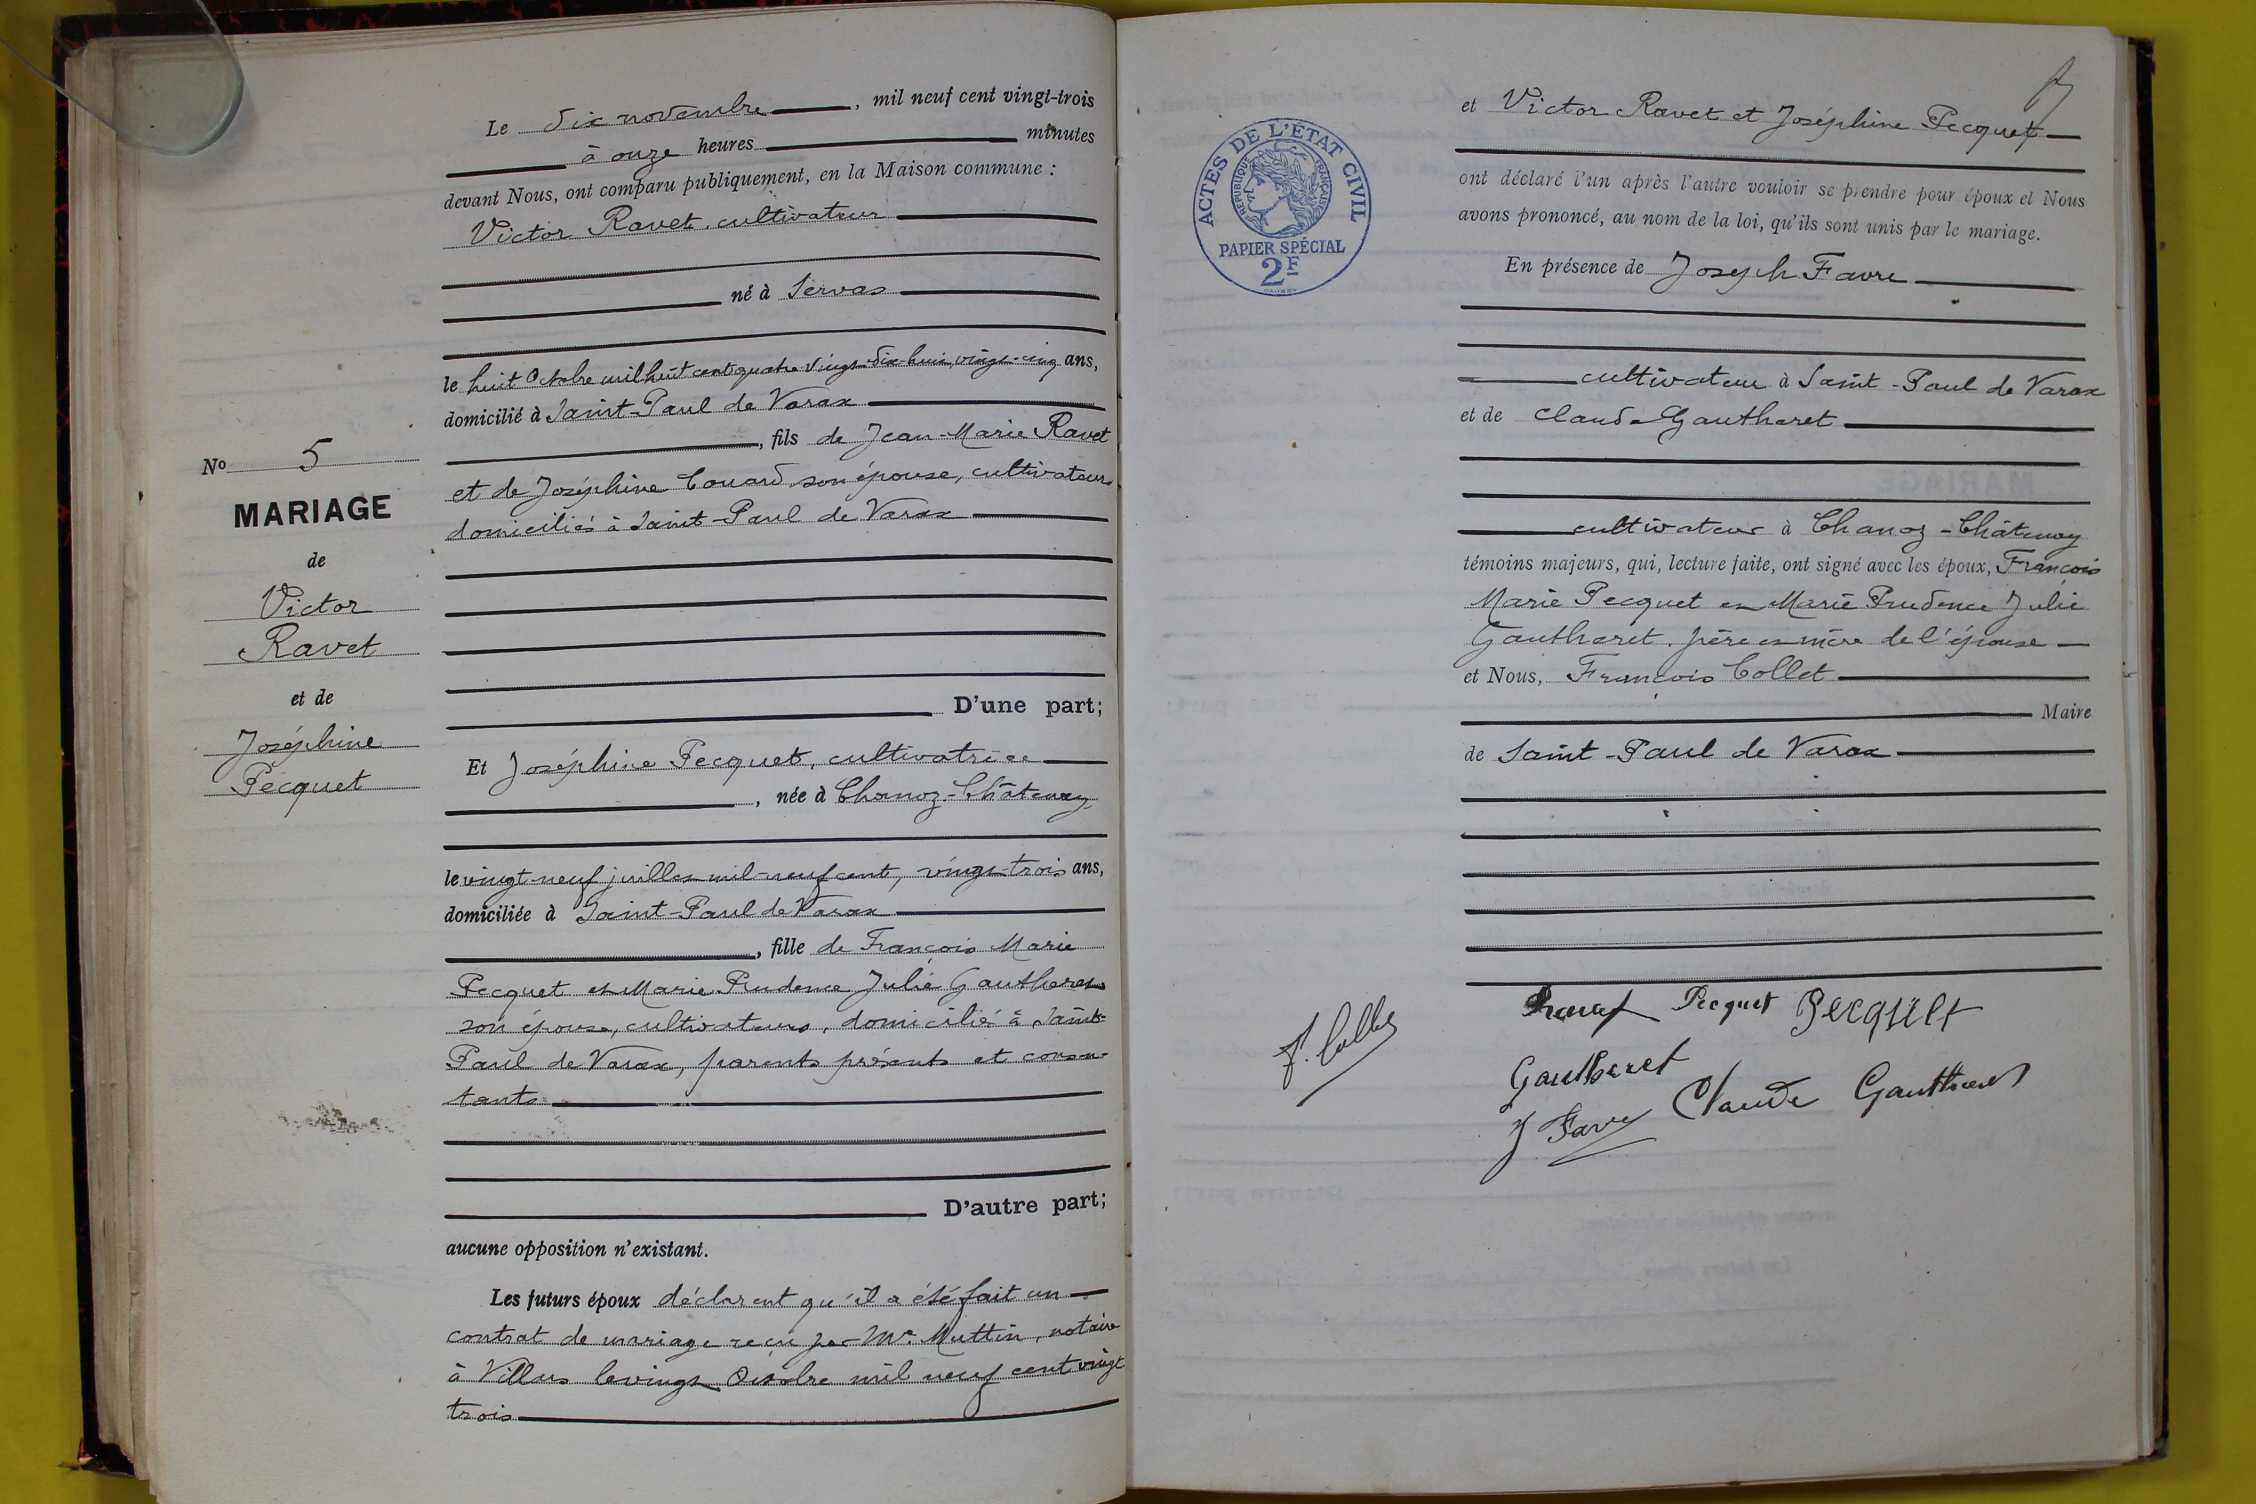 Le dix novembre, mil neuf cent vingt-trois
à onze heures minutes
devant Nous, ont comparu publiquement, en la Maison commune :
Victor Ravet, cultivateur
né à Servas
le huit Octobre mil huit cent quatre vingt dix-huit, vingt-cinq ans,
domicilié à Saint-Paul de Varax
, fils de Jean-Marie Ravet
et de Joséphine Couard son épouse, cultivateurs
domiciliés à Saint-Paul de Varax
No 5
MARIAGE
de
Victor
Ravet
et de
Joséphine
Pecquet
D'une part;
Et Joséphine Pecquet, cultivatrice
, née à Chanoz-Châtenay
le vingt-neuf juillet mil-neuf cent, vingt-trois ans,
domiciliée à Saint-Paul de Varax
, fille de François Marie
Pecquet et Marie Prudence Julie Gautheret
son épouse, cultivateurs, domiciliés à Saint-
Paul de Varax, parents présents et consen-
tants
D'autre part;
aucune opposition n'existant.
Les futurs époux déclarent qu'il a été fait un
contrat de mariage reçu par Me Muttin, notaire
à Villars le vingt Octobre mil neuf cent vingt
trois
et Victor Ravet et Joséphine Pecquet
ACTES DE L'ÉTAT CIVIL
RÉPUBLIQUE FRANÇAISE
PAPIER SPÉCIAL
2F
ont déclaré l'un après l'autre vouloir se prendre pour époux et Nous
avons prononcé, au nom de la loi, qu'ils sont unis par le mariage.
En présence de Joseph Favre
cultivateur à Saint-Paul de Varax
et de Claude Gautheret
cultivateur à Chanoz-Châtenay
témoins majeurs, qui, lecture faite, ont signé avec les époux, François
Marie Pecquet et Marie Prudence Julie
Gautheret père et mère de l'épouse
et Nous, François Collet
Maire
de Saint-Paul de Varax
Ravet Pecquet Pecquet
F. Collet
Gautheret
J Favre Claude Gautheret